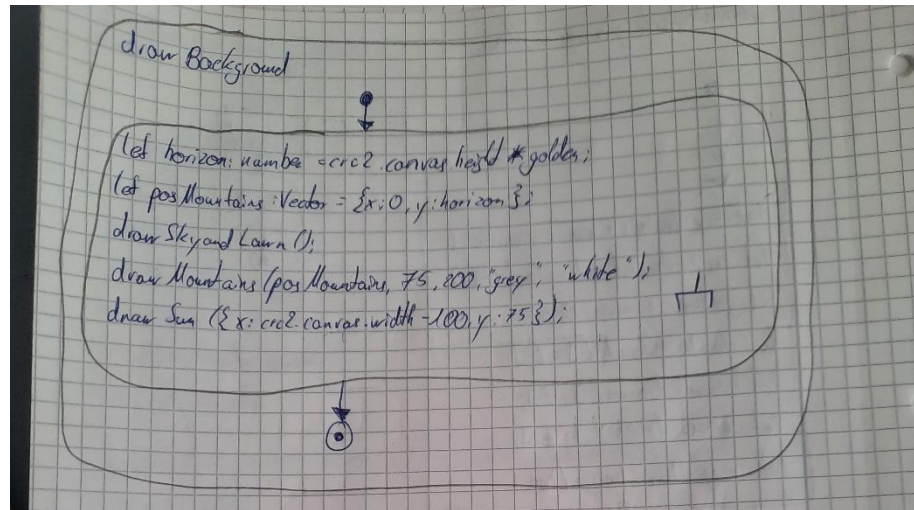 draw Background
let horizon: number = crc2.canvas.height * golden;
let posMountains: Vector = {x: 0, y: horizon};
draw Sky and Lawn ();
draw Mountains (posMountains, 75, 200, "grey", "white");
draw Sun ({x: crc2.canvas.width - 100, y: 75});